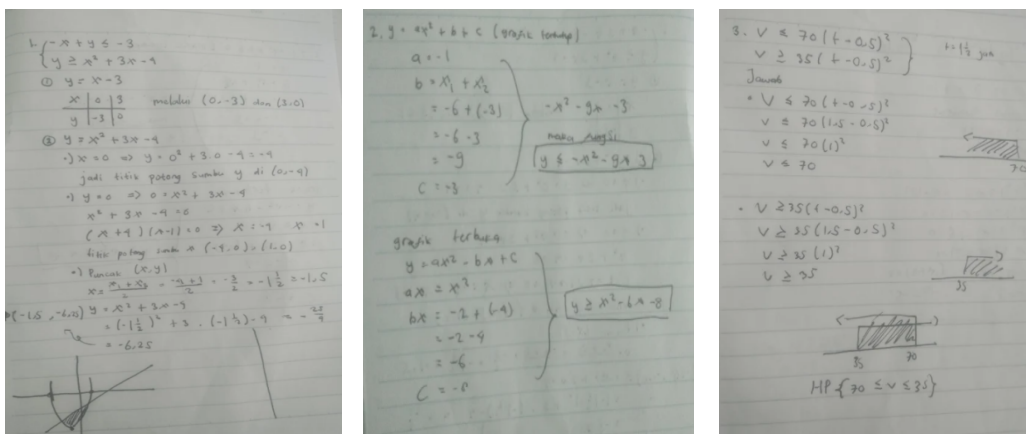 1. { -x + y ≤ -3
y ≥ x² + 3x - 4
① y = x - 3
x | 0 | 3
y | -3 | 0
melalui (0, -3) dan (3, 0)
② y = x² + 3x - 4
•) x = 0 ⇒ y = 0² + 3.0 - 4 = -4
jadi titik potong sumbu y di (0, -4)
•) y = 0 ⇒ 0 = x² + 3x - 4
x² + 3x - 4 = 0
(x + 4) (x - 1) = 0 ⇒ x = -4 x = 1
titik potong (-4, 0), (1, 0)
•) Puncak (x, y)
= -3/2 = -1 1/2 = -1,5
(-1,5, -6,25) y = x² + 3x - 4
= (-1 1/2)² + 3 . (-1 1/2) - 4 = - 25/4
= -6,25
2. y = ax² + b + c (grafik tertutup)
a = -1
b = x₁ + x₂
= -6 + (-3)
= -6 - 3
= -9
c = -3
-x² - 9x - 3
maka
y ≤ -x² - 9x - 3
grafik terbuka
y = ax² - bx + c
ax = x²
bx = -2 + (-4)
= -2 - 4
= -6
c = -8
y ≥ x² - 6x - 8
3. V ≤ 70 (t - 0,5)²
V ≥ 35 (t - 0,5)²
t = 1 1/2 jam
Jawab
• V ≤ 70 (t - 0,5)²
V ≤ 70 (1,5 - 0,5)²
V ≤ 70 (1)²
V ≤ 70
70
• V ≥ 35 (t - 0,5)²
V ≥ 35 (1,5 - 0,5)²
V ≥ 35 (1)²
V ≥ 35
35
35 70
HP {70 ≤ V ≤ 35}